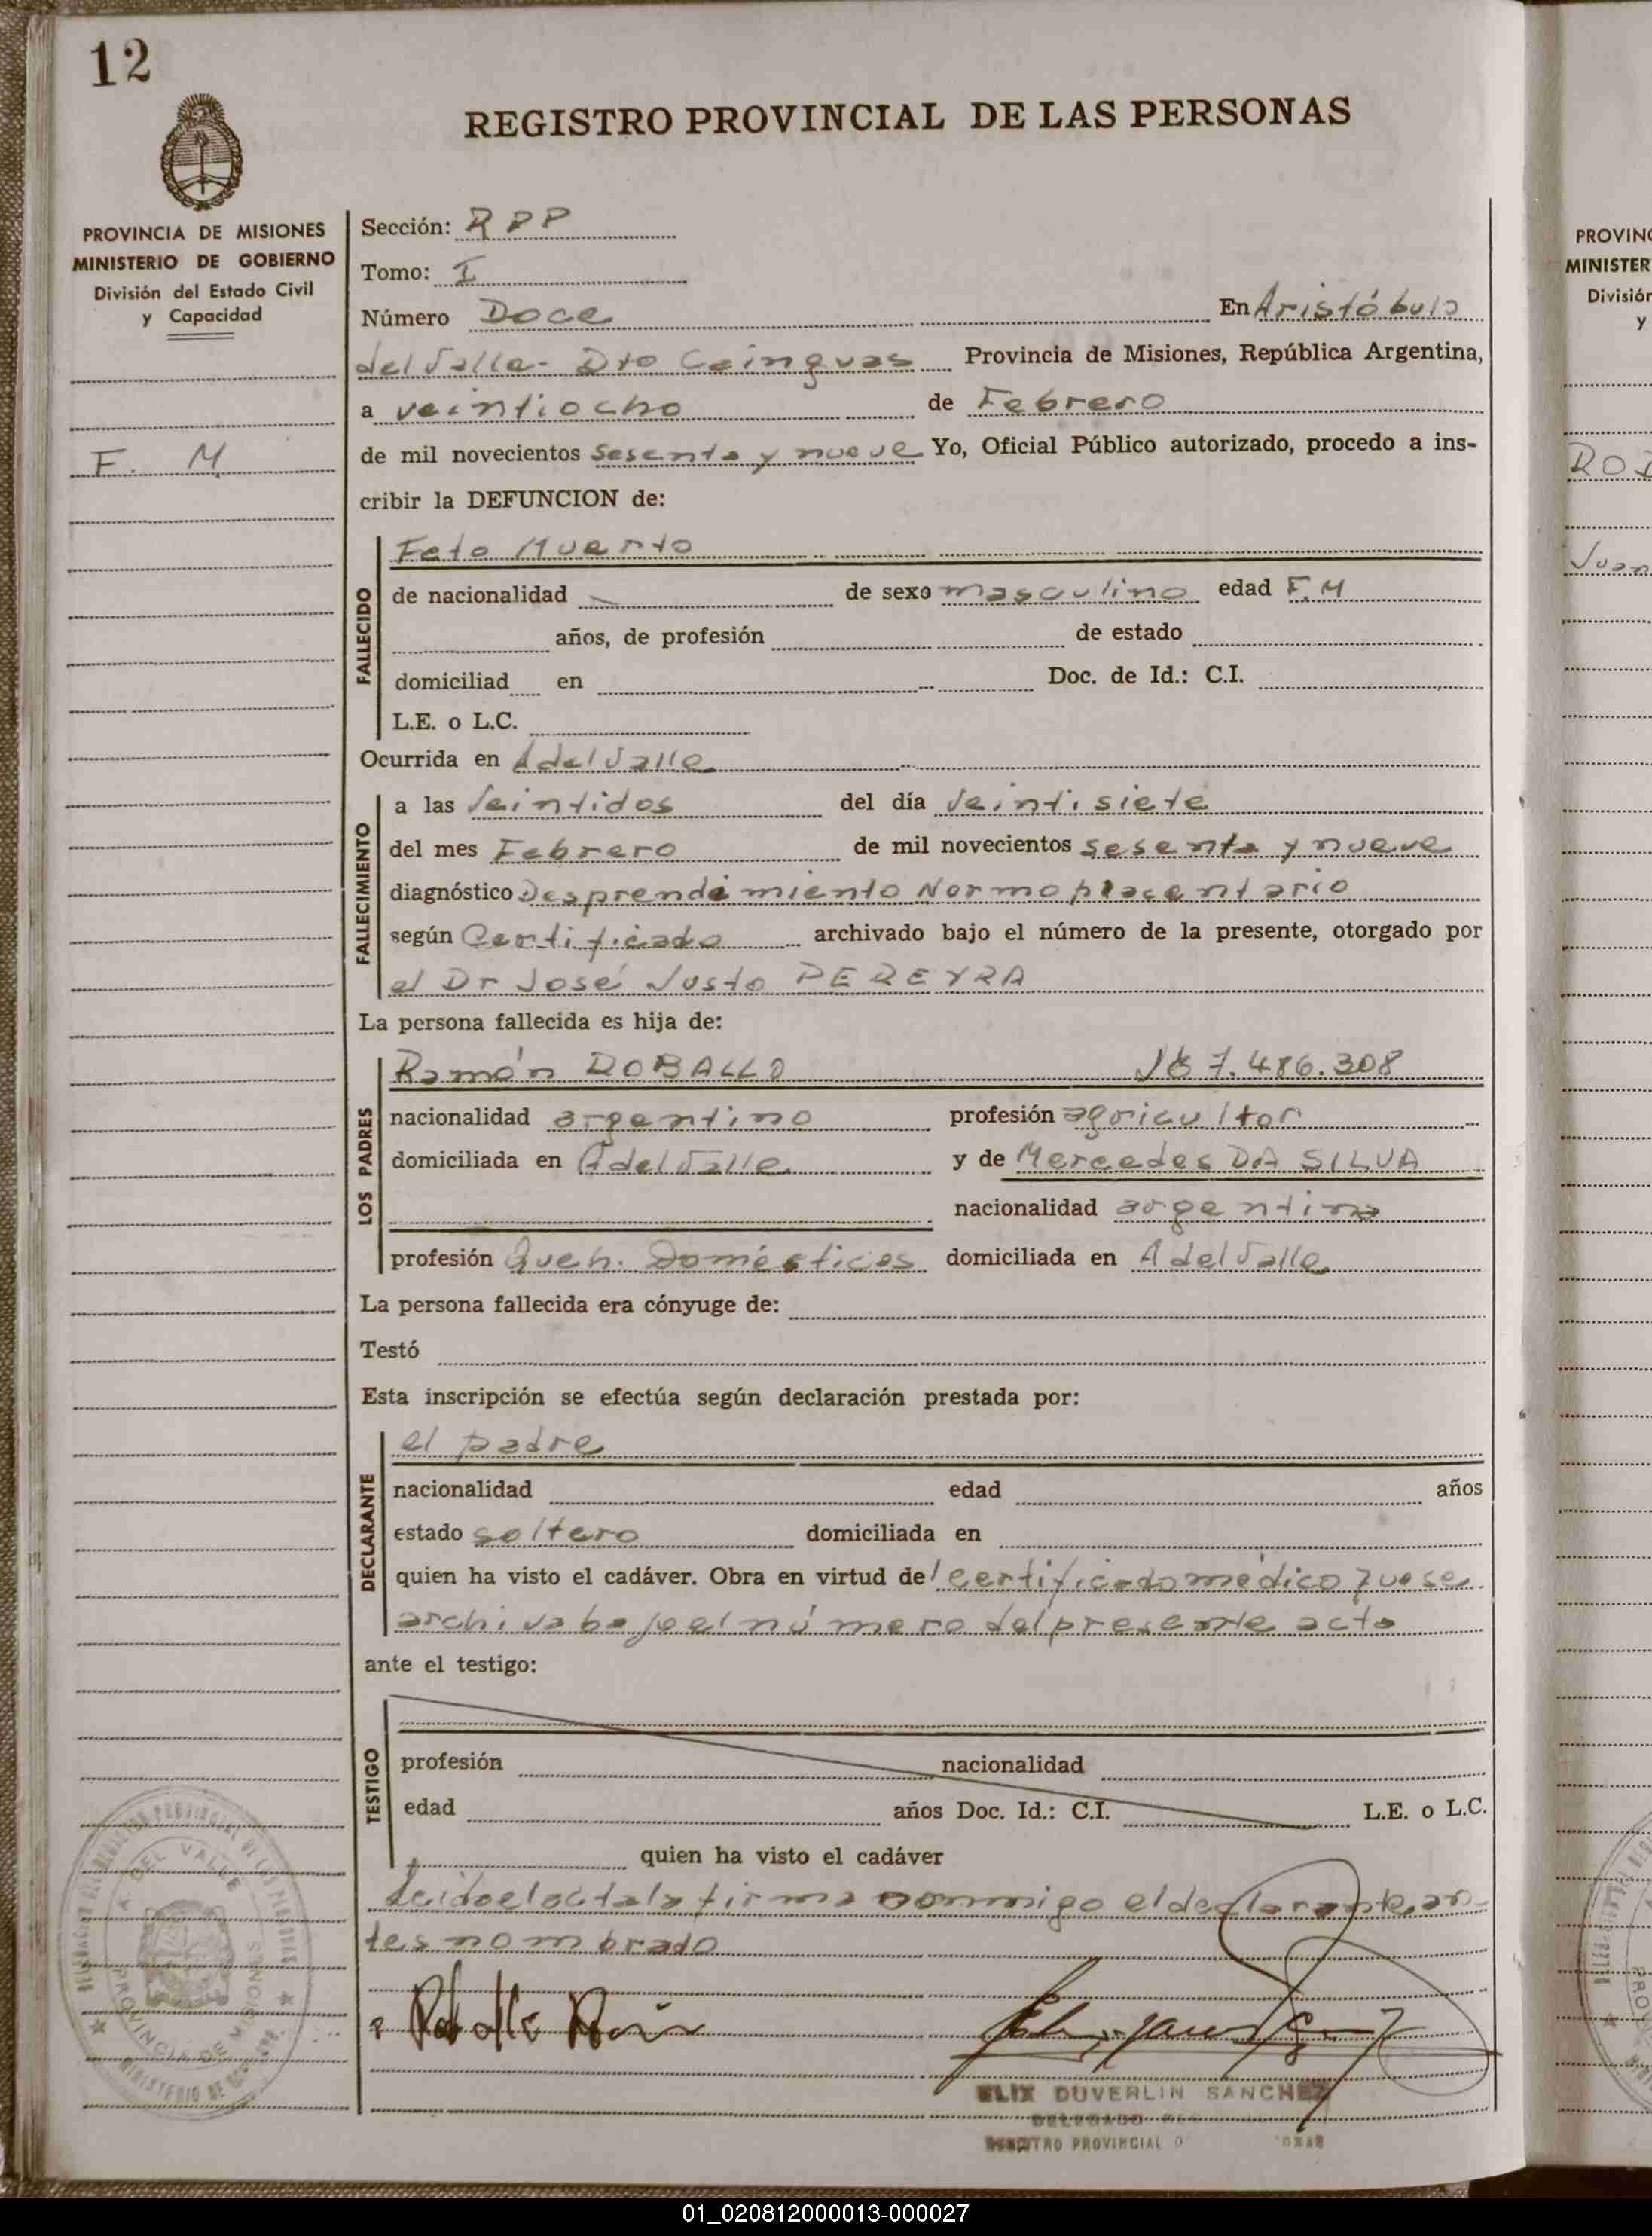 12
REGISTRO PROVINCIAL DE LAS PERSONAS
PROVINCIA DE MISIONES
MINISTERIO DE GOBIERNO
División del Estado Civil
y Capacidad
F. M
Sección: RPP
Tomo: I
Número Doce En Aristóbulo
del Valle - Dto Cainguas Provincia de Misiones, República Argentina,
a veintiocho de Febrero
de mil novecientos sesenta y nueve Yo, Oficial Público autorizado, procedo a ins-
cribir la DEFUNCION de:
FALLECIDO
Feto Muerto
de nacionalidad de sexo masculino edad F.M
años, de profesión de estado
domiciliad en Doc. de Id.: C.I.
L.E. o L.C.
Ocurrida en A del Valle
FALLECIMIENTO
a las Veintidos del día Veintisiete
del mes Febrero de mil novecientos sesenta y nueve
diagnóstico Desprendimiento Normoplacentario
según Certificado archivado bajo el número de la presente, otorgado por
el Dr José Justo PEREYRA
La persona fallecida es hija de:
LOS PADRES
Ramón ROBALLO 7.486.308
nacionalidad argentino profesión agricultor
domiciliada en A del Valle y de Mercedes DA SILVA
nacionalidad argentina
profesión Queh. Domésticos domiciliada en A del Valle
La persona fallecida era cónyuge de:
Testó
Esta inscripción se efectúa según declaración prestada por:
DECLARANTE
el padre
nacionalidad edad años
estado soltero domiciliada en
quien ha visto el cadáver. Obra en virtud del certificado médico que se
archiva bajo el número del presente acta
ante el testigo:
TESTIGO
profesión nacionalidad
edad años Doc. Id.: C.I. L.E. o L.C.
quien ha visto el cadáver
Leido el acta la firma conmigo el declarante an-
tes nombrado
ELIX DUVERLIN SANCHEZ
DELEGADO
REGISTRO PROVINCIAL D
A. DEL VALLE
PROVINCIA DE MISIONES
PROVIN
MINISTER
División
y
Juan
01_020812000013-000027